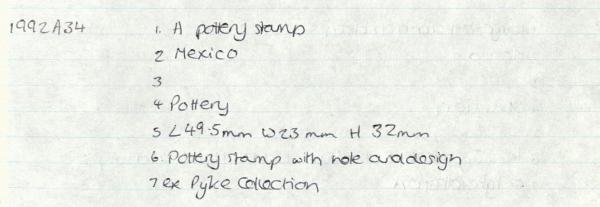 1992A34 1. A pottery stamp
2 Mexico
3
4 Pottery
5 L 49.5mm W 23 mm H 32mm
6. Pottery stamp with hole and design
7 ex Pyke Collection